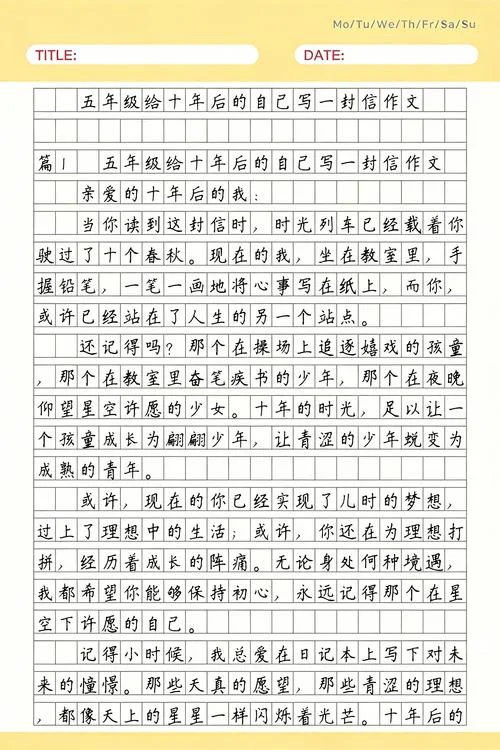 Mo/Tu/We/Th/Fr/Sa/Su
TITLE: DATE:
五年级给十年后的自己写一封信作文
篇1 五年级给十年后的自己写一封信作文
亲爱的十年后的我：
当你读到这封信时，时光列车已经载着你
驶过了十个春秋。现在的我，坐在教室里，手
握铅笔，一笔一画地将心事写在纸上，而你，
或许已经站在了人生的另一个站点。
还记得吗？那个在操场上追逐嬉戏的孩童
，那个在教室里奋笔疾书的少年，那个在夜晚
仰望星空许愿的少女。十年的时光，足以让一
个孩童成长为翩翩少年，让青涩的少年蜕变为
成熟的青年。
或许，现在的你已经实现了儿时的梦想，
过上了理想中的生活；或许，你还在为理想打
拼，经历着成长的阵痛。无论身处何种境遇，
我都希望你能够保持初心，永远记得那个在星
空下许愿的自己。
记得小时候，我总爱在日记本上写下对未
来的憧憬。那些天真的愿望，那些青涩的理想
，都像天上的星星一样闪烁着光芒。十年后的